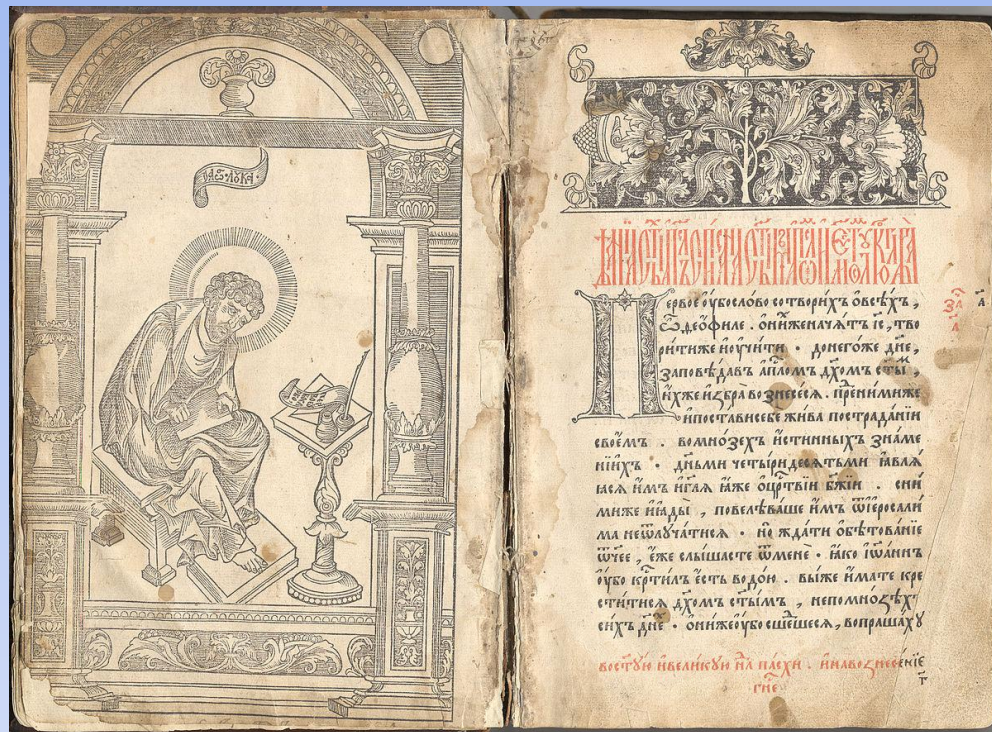 ОА҃Ѡ. ЛУКА.
Первое ᲂу҆бо слово сотворихъ ѡ҆всѣхъ,
ѽ деѻ҆филе. ѻ҆ ниженачѧ́тъ і҆с҃, тво
ри́тиже и҆оу҆чи́ти · донего́же дн҃е,
заповѣ́давъ а҆пл҃омъ дх҃омъ ст҃ы́м,
и҆́хже и҆ꙁбра̀ воꙁнесе́сѧ. преⷣ ни́миже
и҆поста́ви себе жи́ва пострада́нїи
свое́мъ. вомно́ꙁехъ и҆́стинныхъ зна́ме
нїихъ · дн҃ьми четы́ридесѧтьми ꙗ҆влѧ́
ꙗсѧ и҆̀мъ и҆гл҃ѧ ꙗ҆́же ѻ҆цр҃твїи бж҃їи. сни́
миже ꙗ҆ды̀, повелѣ́ваше и҆̀мъ ѿ і҆ерⷭ҇али́
ма неѿлуча́тисѧ · но жда́ти ѻ҆бѣтова́нїе
ѿч҃ее, е҆́же слы́шасте ѿменѐ · ꙗ҆́ко і҆ѡа́ннъ
оу҆́бо крⷭ҇ти́лъ є҆́сть водо́ю. вы́же и҆́мате кре
сти́тисѧ дх҃омъ ст҃ы́мъ, непомно́ꙁѣхъ
си́хъ дн҃е · ѻ҆ниже оу҆бо сше́шесѧ, вопраша́ху
ꙁа҃
а҃
во ст҃ую и҆вели́кую нⷣлю па́схи. и҆ на воꙁнесе́нїе
гн҃е